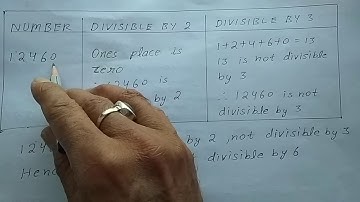 NUMBER
DIVISIBLE BY 2
DIVISIBLE BY 3
12460
Ones place is
zero
12460 is
by 2
1+2+4+6+0 = 13
13 is not divisible
by 3
∴ 12460 is not
divisible by 3
by 2, not divisible by 3
divisible by 6